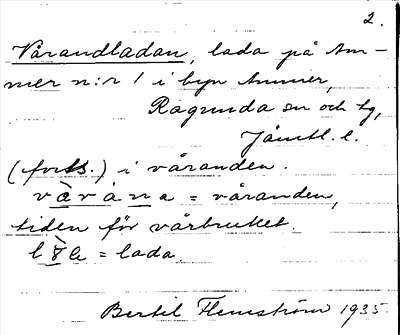 2.
Vårandladan, lada på Am-
mer n:r 1 i byn Ammer,
Ragunda sn och tg,
Jämtl. l.
(forts.) i våranden.
vàvána = våranden,
tiden för vårbruket.
= lada
Bertil Flemström 1935.